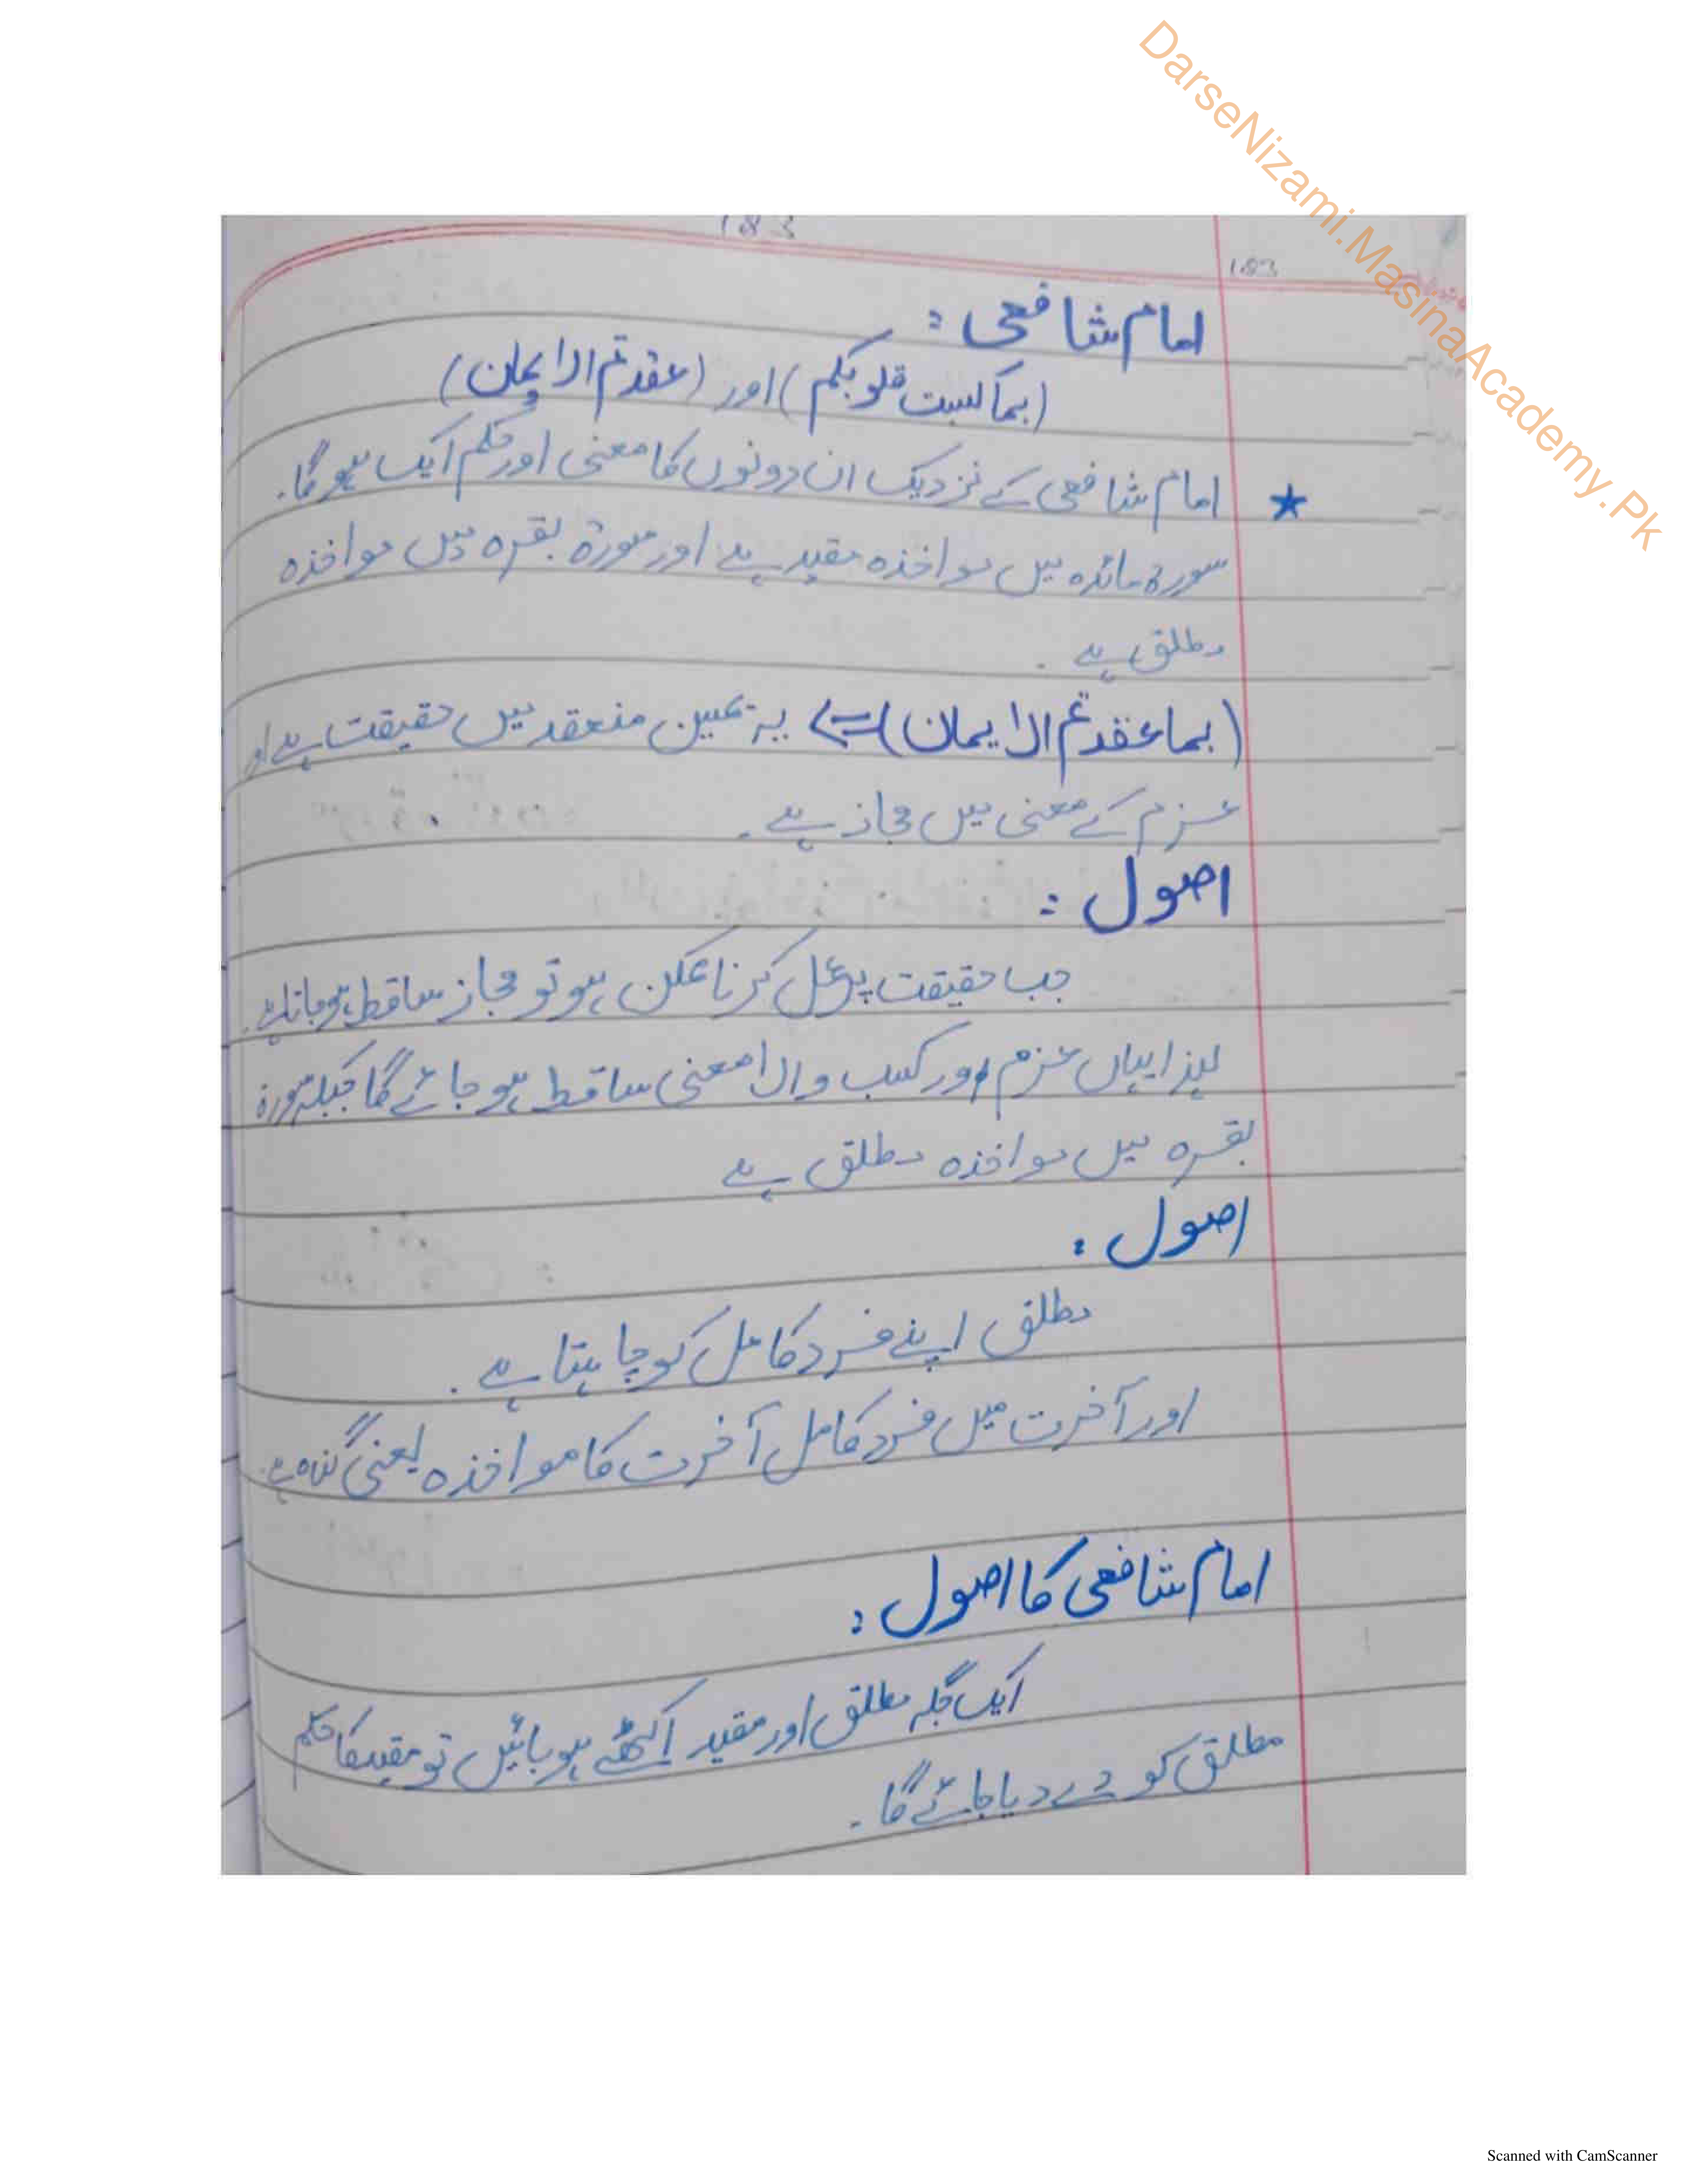 DarseNizami.MasinaAcademy.Pk
183
183
امام شافعی :
(بما کسبت قلوبکم) اور (عقدتم الایمان)
★ امام شافعی کے نزدیک ان دونوں کا معنی اور حکم ایک ہوگا۔
سورۃ مائدہ میں مواخذہ مقید ہے اور سورۃ بقرہ میں مواخذہ
مطلق ہے ۔
(بما عقدتم الایمان) <= یہ یمین منعقد میں حقیقت ہے اور
عزم کے معنی میں مجاز ہے ۔
اصول :
جب حقیقت پر عمل کرنا ممکن ہو تو مجاز ساقط ہو جاتا ہے ۔
لہذا یہاں عزم اور کسب والا معنی ساقط ہو جائے گا جبکہ سورۃ
بقرہ میں مواخذہ مطلق ہے
اصول :
مطلق اپنے فرد کامل کو چاہتا ہے ۔
اور آخرت میں فرد کامل آخرت کا مواخذہ یعنی گناہ ہے ۔
امام شافعی کا اصول :
ایک جگہ مطلق اور مقید اکٹھے ہو جائیں تو مقید کا حکم
مطلق کو دے دیا جائے گا ۔
Scanned with CamScanner